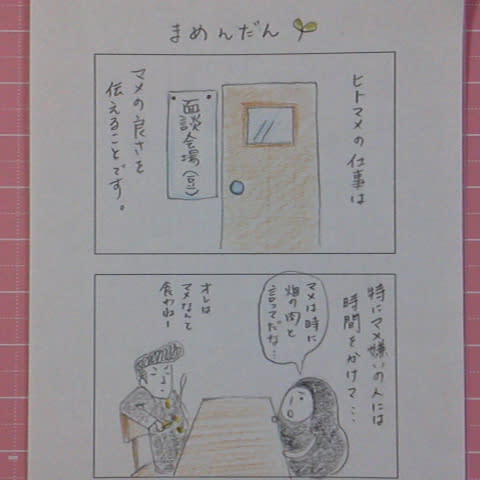 まめんだん
ヒトマメの仕事は
面談会場
マメの良さを
伝えることです。
特にマメ嫌いの人には
時間をかけマ…
マメは時に
畑の肉と
言ってだな…
オレは
マメなんて
食わねー